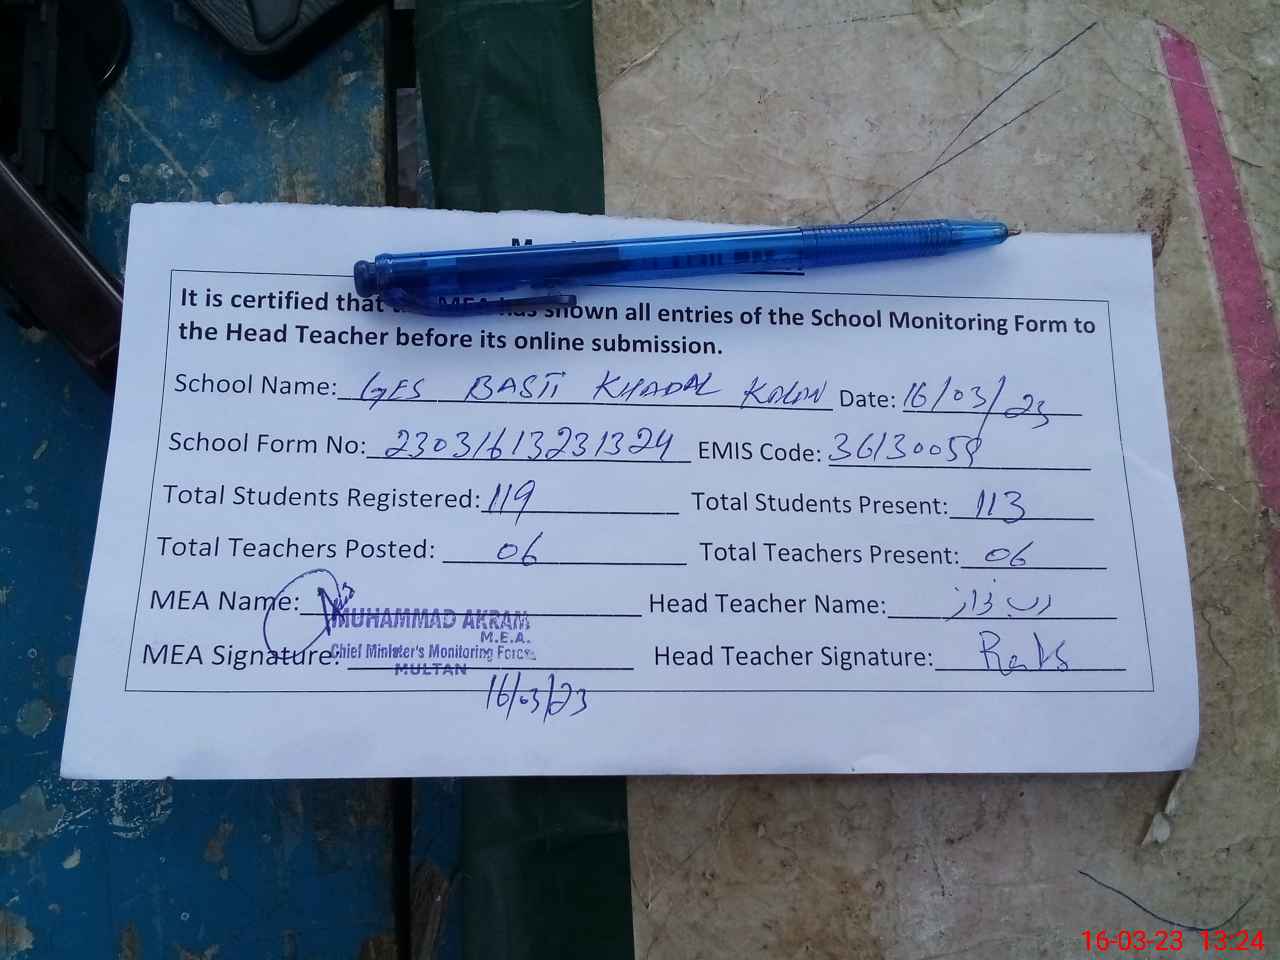 It is certified that the MEA has shown all entries of the School Monitoring Form to
the Head Teacher before its online submission.
School Name: GES BASTI KHADAL KALAN Date: 16/03/23
School Form No: 2303161323 1324 EMIS Code: 36130059
Total Students Registered: 119 Total Students Present: 113
Total Teachers Posted: 06 Total Teachers Present: 06
MEA Name: Head Teacher Name: رب نواز
MUHAMMAD AKRAM
M.E.A.
MEA Signature: Chief Minister's Monitoring Force Head Teacher Signature:
MULTAN
16/03/23
16-03-23 13:24